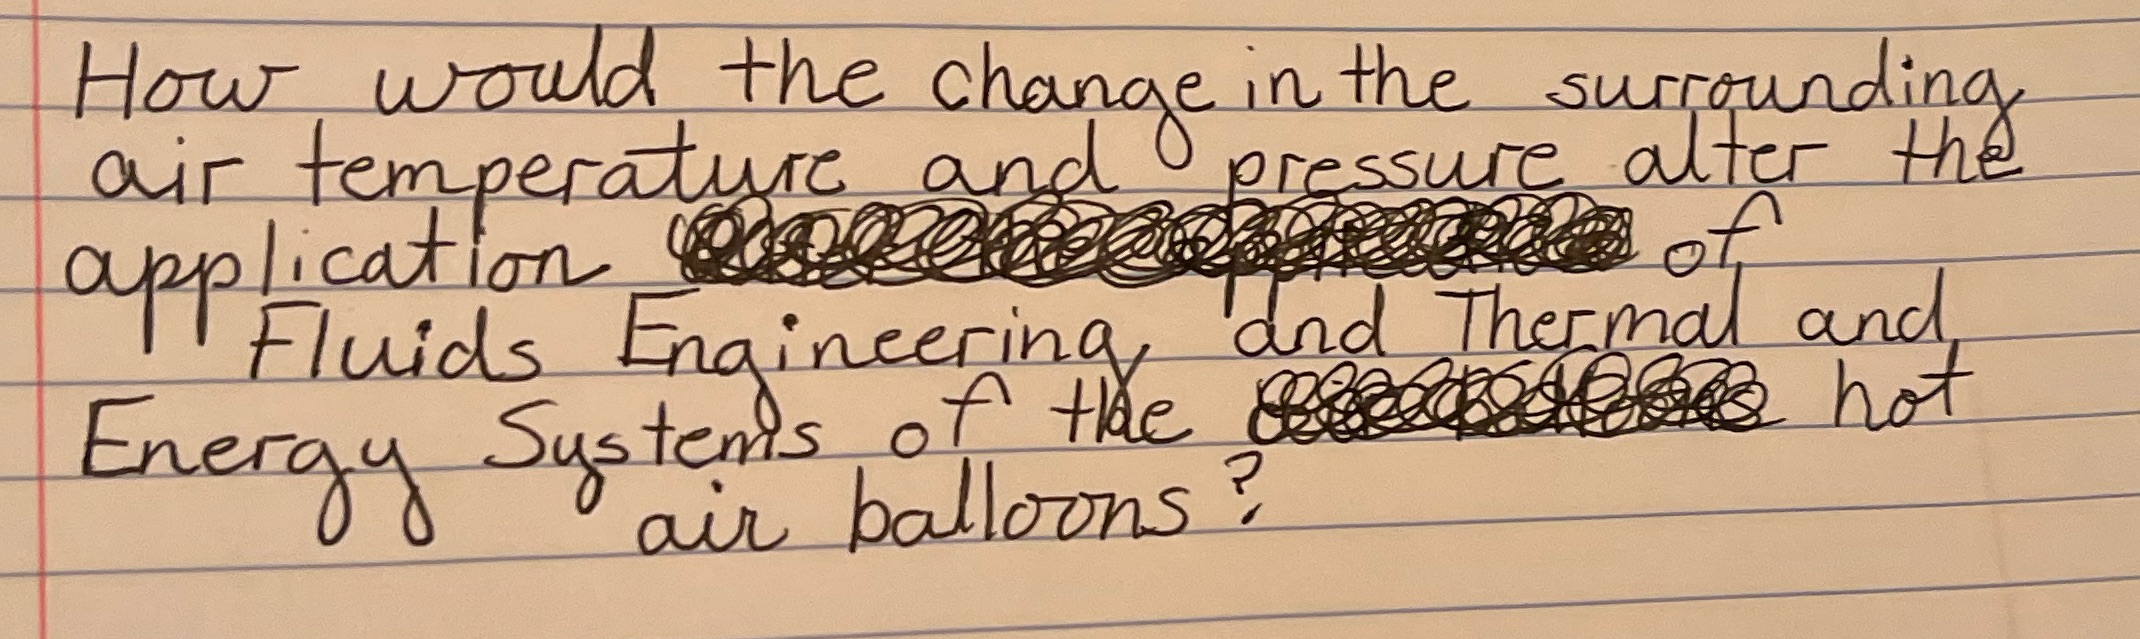 How would the change in the surrounding
air temperature and pressure alter the
application of
Fluids Engineering and Thermal and
Energy Systems of the hot
air balloons?